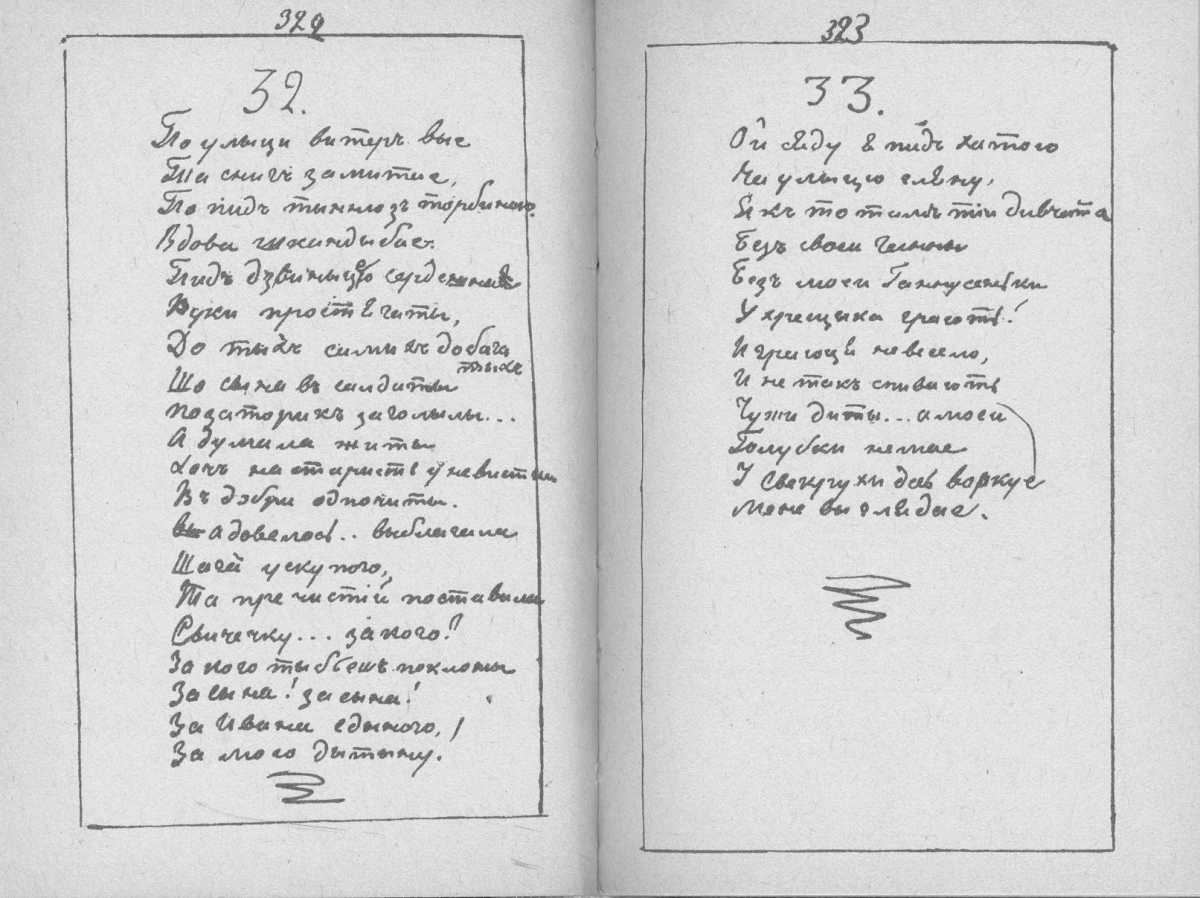 322
32.
По улыци витеръ вые
Та снигъ замитае,
По пидъ тынню зъ торбиною
Вдова шкандыбае.
Пидъ дзвиныцю сердешна
Руки простягаты,
До тыхъ самыхъ до багатыхъ
Що сына въ салдаты
Позаторикъ заголылы...
А думала жыты
Хочъ на старисть у невистыни
Въ добри одпочиты.
А довелось.. выблагала
Шагъ у скупого,
Та пречистій поставила
Свичечку... за кого?
За кого ты бьешъ поклоны
За сына! за сына!
За Ивана едыного,!
За мою дытыну.
323
33.
Ой сяду я пидъ хатою
На улыцю гляну,
Якъ то тамъ тіи дивчата
Безъ своеи Ганны
Безъ моеи Ганнусеньки
У хрещыка граютъ!
И граючи невесело,
И не такъ спиваютъ
Чужи диты... а моеи
Голубки немае
У свекрухи десь воркуе
Мене выглядае.